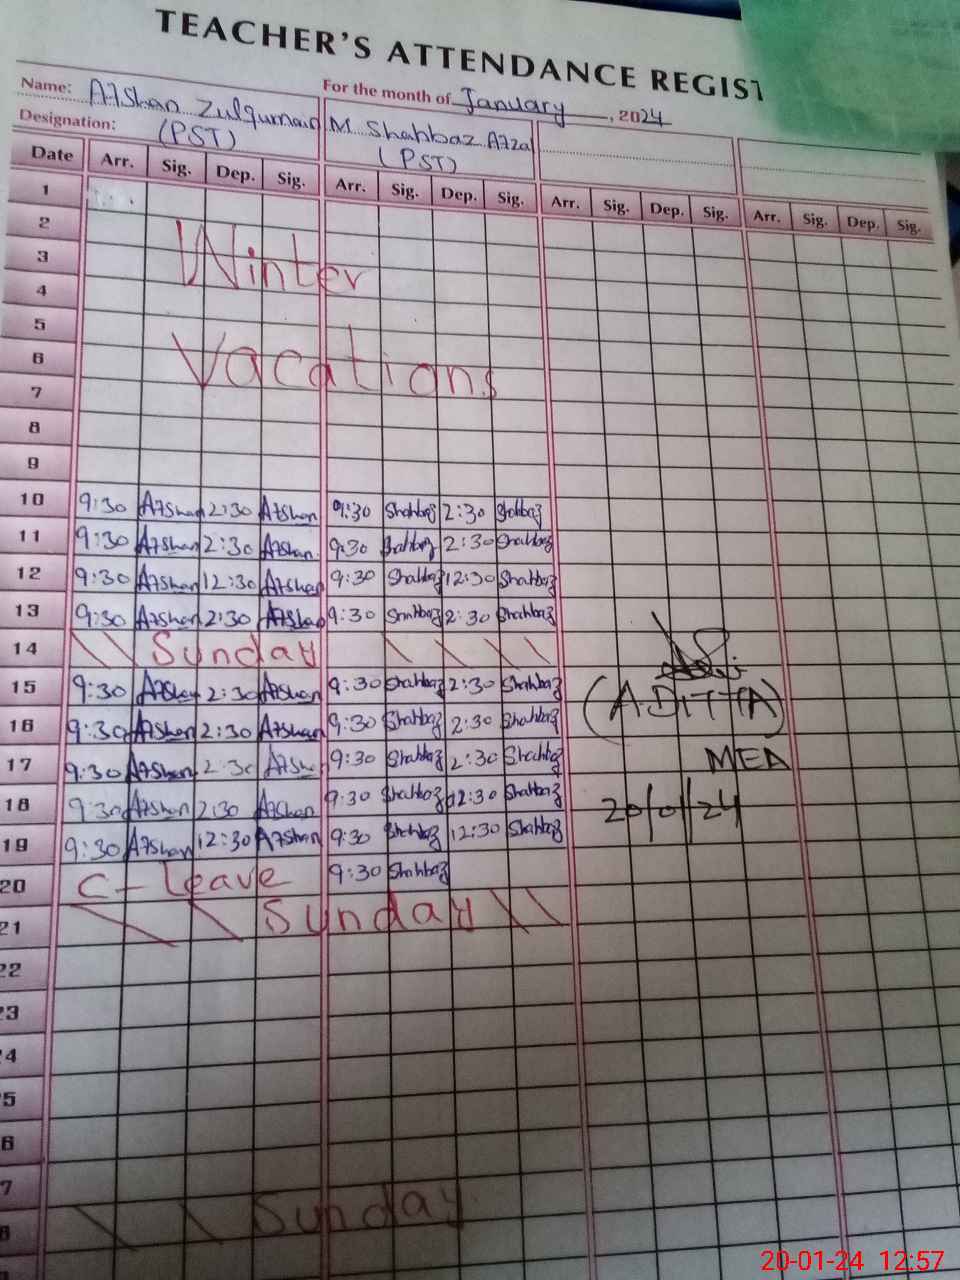 TEACHER'S ATTENDANCE REGIST
Name: Afshan Zulqurnain For the month of January, 2024
Designation: (PST) M. Shahbaz Afzal (PST)
Date Arr. Sig. Dep. Sig. Arr. Sig. Dep. Sig. Arr. Sig. Dep. Sig. Arr. Sig. Dep. Sig.
1
2
3 Winter
4
5
6 Vacations
7
8
9
10 9:30 Afshan 2:30 Afshan 9:30 Shahbaz 2:30 Shahbaz
11 9:30 Afshan 2:30 Afshan 9:30 Shahbaz 2:30 Shahbaz
12 9:30 Afshan 12:30 Afshan 9:30 Shahbaz 12:30 Shahbaz
13 9:30 Afshan 2:30 Afshan 9:30 Shahbaz 2:30 Shahbaz
14 Sunday
15 9:30 Afshan 2:30 Afshan 9:30 Shahbaz 2:30 Shahbaz
16 9:30 Afshan 2:30 Afshan 9:30 Shahbaz 2:30 Shahbaz (A.DITTTA)
17 9:30 Afshan 2:30 Afshan 9:30 Shahbaz 2:30 Shahbaz MEA
18 9:30 Afshan 2:30 Afshan 9:30 Shahbaz 12:30 Shahbaz 20/01/24
19 9:30 Afshan 12:30 Afshan 9:30 Shahbaz 12:30 Shahbaz
20 C-Leave 9:30 Shahbaz
21 Sunday
22
3
4
5
6
7
8 Sunday
20-01-24 12:57